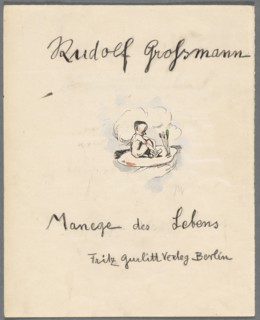 Rudolf Großmann
Manege des Lebens
Fritz Gurlitt Verlag Berlin